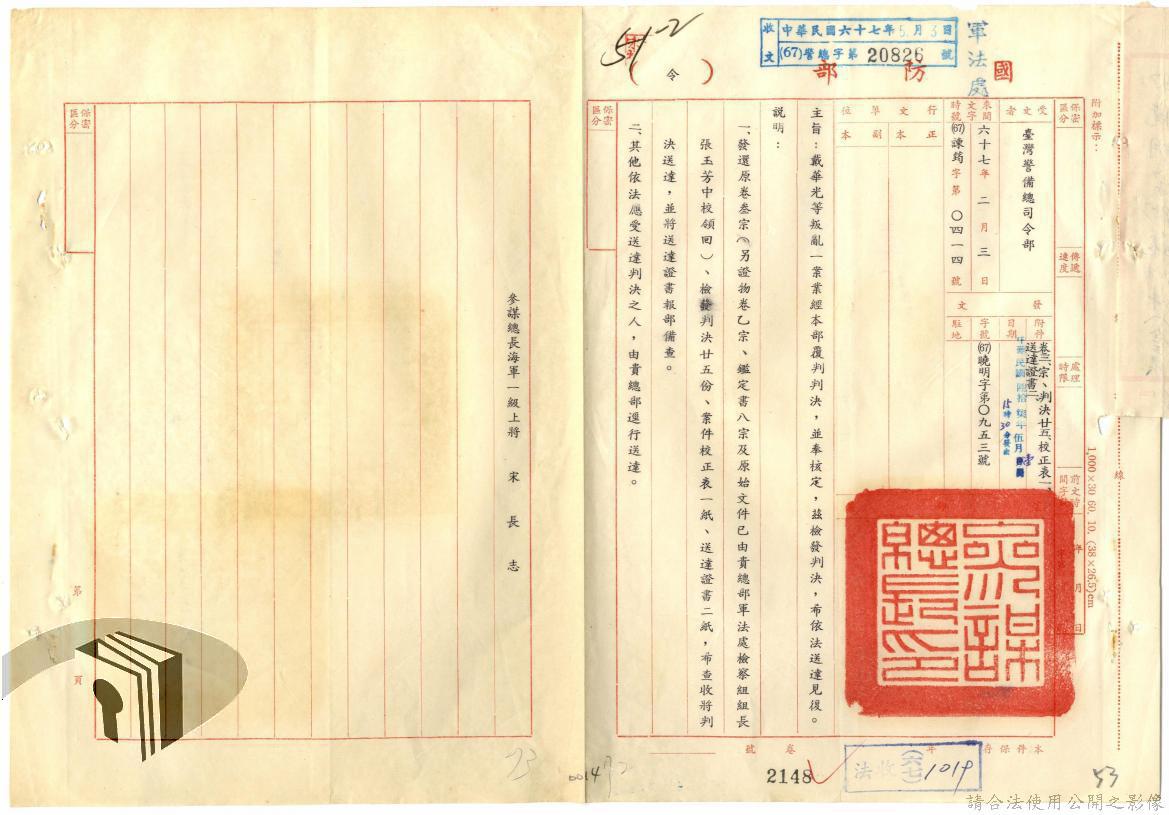 國防部
(令)
軍法處
收文
中華民國六十七年5月3日
(67)警總字第20826號
附加標示：
保密區分
受文者
臺灣警備總司令部
來文時間字號
六十七年二月三日
(67)諫筠字第〇四一四號
行文單位
正本
副本
傳遞速度
處理時限
發文
附件
卷三宗、判決廿五、校正表一、
送達證書二
日期
字號
(67)曉明字第〇九五三號
駐地
1,000×30 60. 10. (38×26.5)cm
線
主旨：戴華光等叛亂一案業經本部覆判判決，並奉核定，茲檢發判決，希依法送達見復。
說明：
一、發還原卷叁宗（另證物卷乙宗、鑑定書八宗及原始文件已由貴總部軍法處檢察組組長
張玉芳中校領回）、檢發判決廿五份、案件校正表一紙、送達證書二紙，希查收將判
決送達，並將送達證書報部備查。
二、其他依法應受送達判決之人，由貴總部逕行送達。
參謀總長海軍一級上將 宋長志
參謀總長印
保密區分
保密區分
第
頁
本件保存
年
卷號
2148
法收(六七)1019
53
0014
請合法使用公開之影像